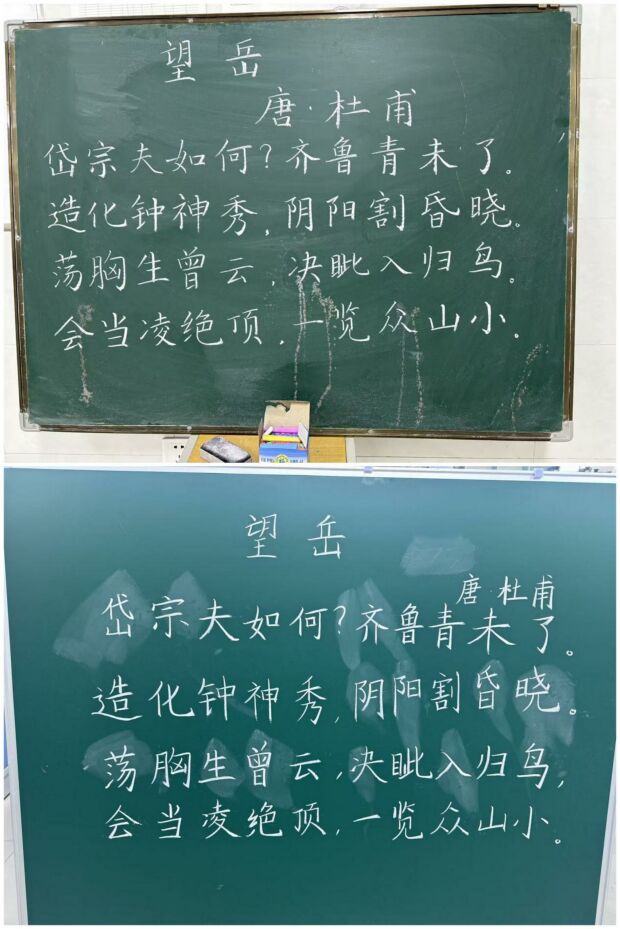 望岳
唐·杜甫
岱宗夫如何?齐鲁青未了。
造化钟神秀,阴阳割昏晓。
荡胸生曾云,决眦入归鸟。
会当凌绝顶,一览众山小。
望岳
唐·杜甫
岱宗夫如何?齐鲁青未了。
造化钟神秀,阴阳割昏晓。
荡胸生曾云,决眦入归鸟,
会当凌绝顶,一览众山小。